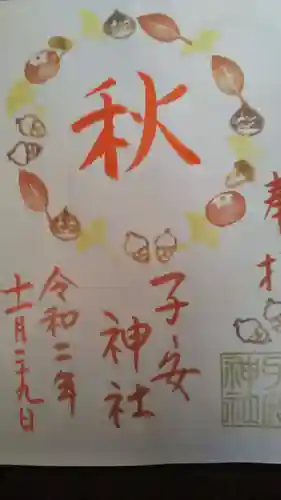 奉拝
秋
子安
神社
令和二年
十一月二十九日